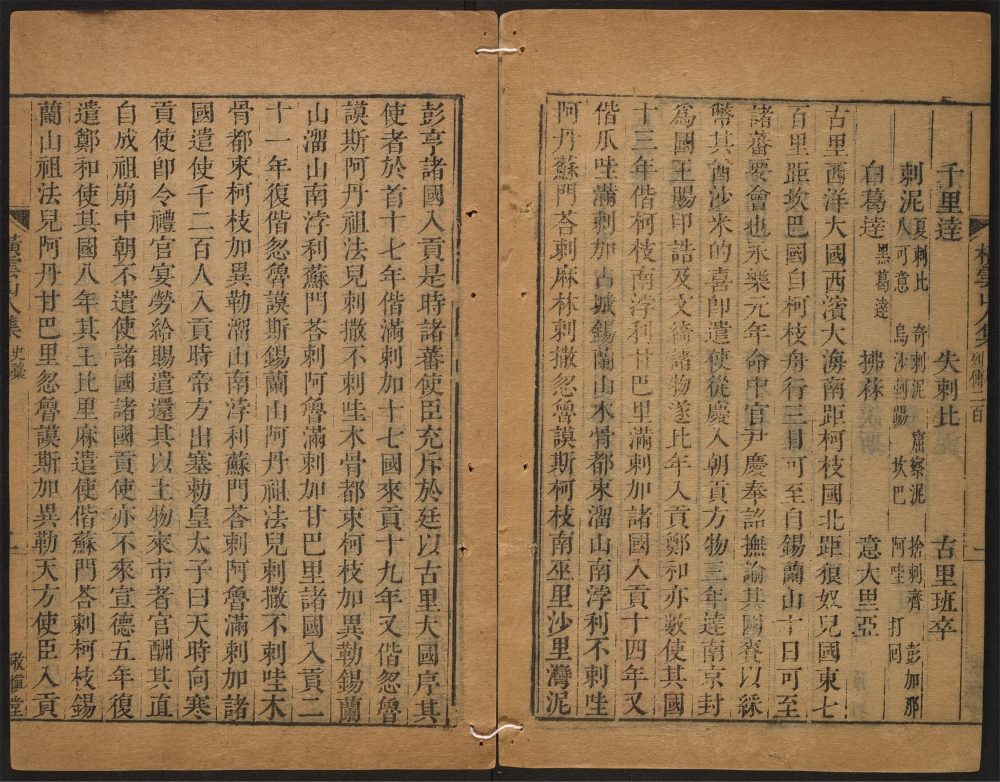 橫雲山人集 列傳二百 一
千里達 失剌比 古里班卒
剌泥 夏剌比 奇剌泥 窟察泥 捨剌齊 彭加那
八可意 烏沙剌踢 坎巴 阿哇 打回
白葛達 黑葛達 拂菻 意大里亞
古里西洋大國西濱大海南距柯枝國北距狠奴兒國東七
百里距坎巴國自柯枝舟行三日可至自錫蘭山十日可至
諸蕃要會也永樂元年命中官尹慶奉詔撫諭其國賚以綵
幣其酋沙米的喜卽遣使從慶入朝貢方物三年達南京封
爲國王賜印誥及文綺諸物遂比年入貢鄭和亦數使其國
十三年偕柯枝南浡利甘巴里滿剌加諸國入貢十四年又
偕爪哇滿剌加占城錫蘭山木骨都束溜山南浡利不剌哇
阿丹蘇門荅剌麻林剌撒忽魯謨斯柯枝南巫里沙里灣泥
彭亨諸國入貢是時諸蕃使臣充斥於廷以古里大國序其
使者於首十七年偕滿剌加十七國來貢十九年又偕忽魯
謨斯阿丹祖法兒剌撒不剌哇木骨都束柯枝加異勒錫蘭
山溜山南浡利蘇門荅剌阿魯滿剌加甘巴里諸國入貢二
十一年復偕忽魯謨斯錫蘭山阿丹祖法兒剌撒不剌哇木
骨都束柯枝加異勒溜山南浡利蘇門荅剌阿魯滿剌加諸
國遣使千二百人入貢時帝方出塞勅皇太子曰天時向寒
貢使卽令禮官宴勞給賜遣還其以土物來市者官酬其直
自成祖崩中朝不遣使諸國諸國貢使亦不來宣德五年復
遣鄭和使其國八年其王比里麻遣使偕蘇門荅剌柯枝錫
蘭山祖法兒阿丹甘巴里忽魯謨斯加異勒天方使臣入貢
橫雲山人集 史藁 一 敬愼堂